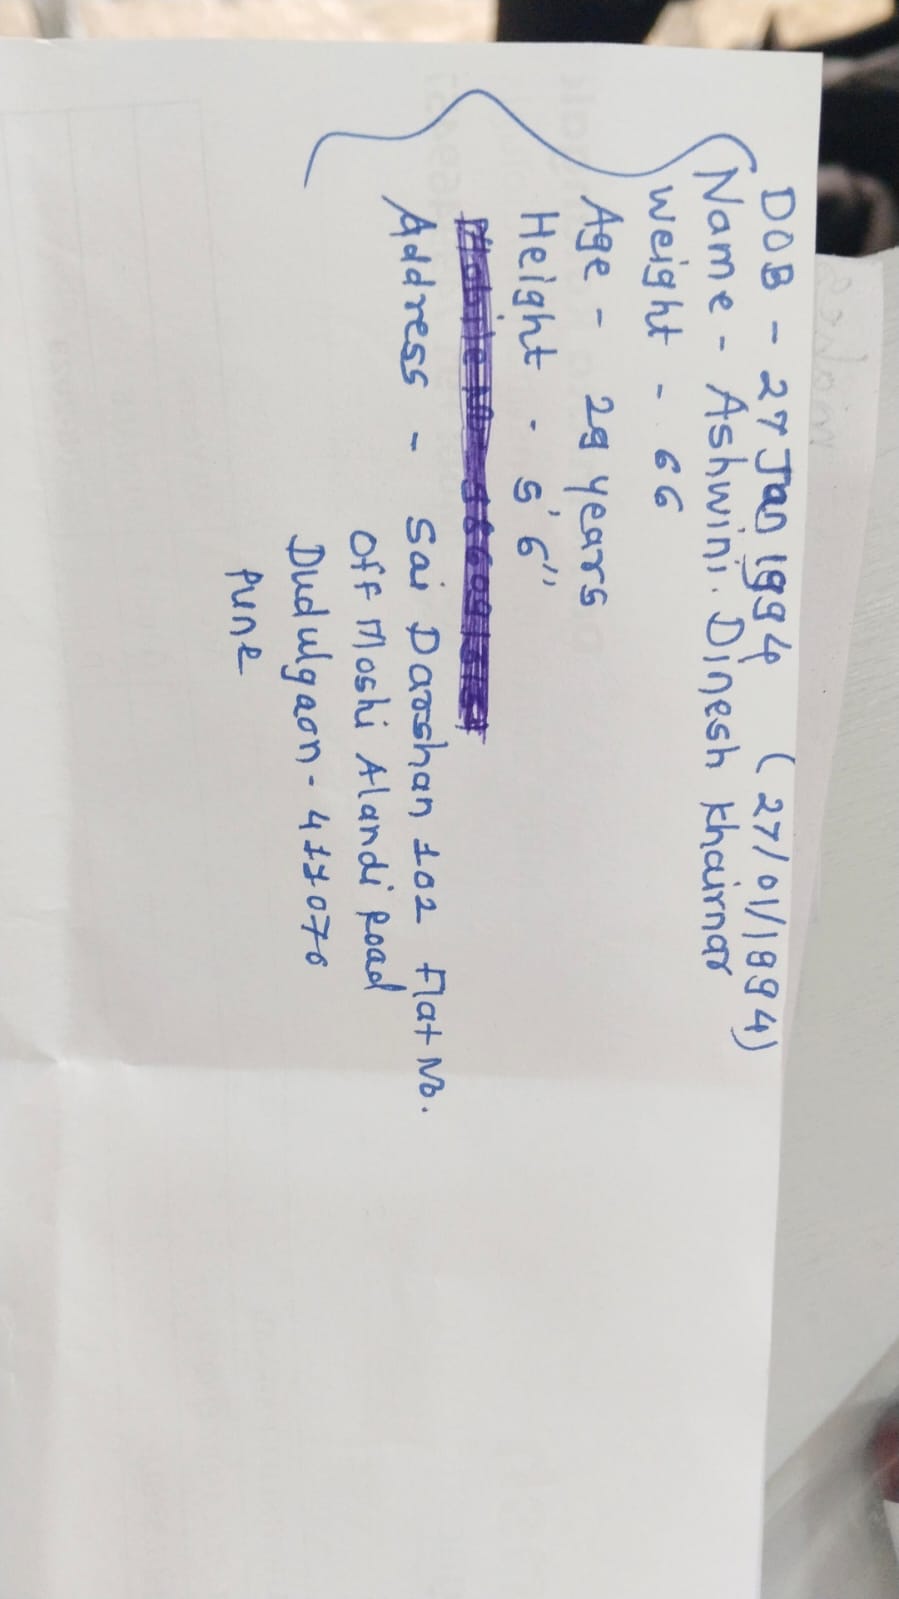 DOB - 27 Jan 1994 (27/01/1994)
Name - Ashwini. Dinesh Khairnar
weight - 66
Age - 29 years
Height - 5'6"
Address - Sai Darshan 102 Flat No.
Off Moshi Alandi Road
Dudulgaon - 411070
Pune